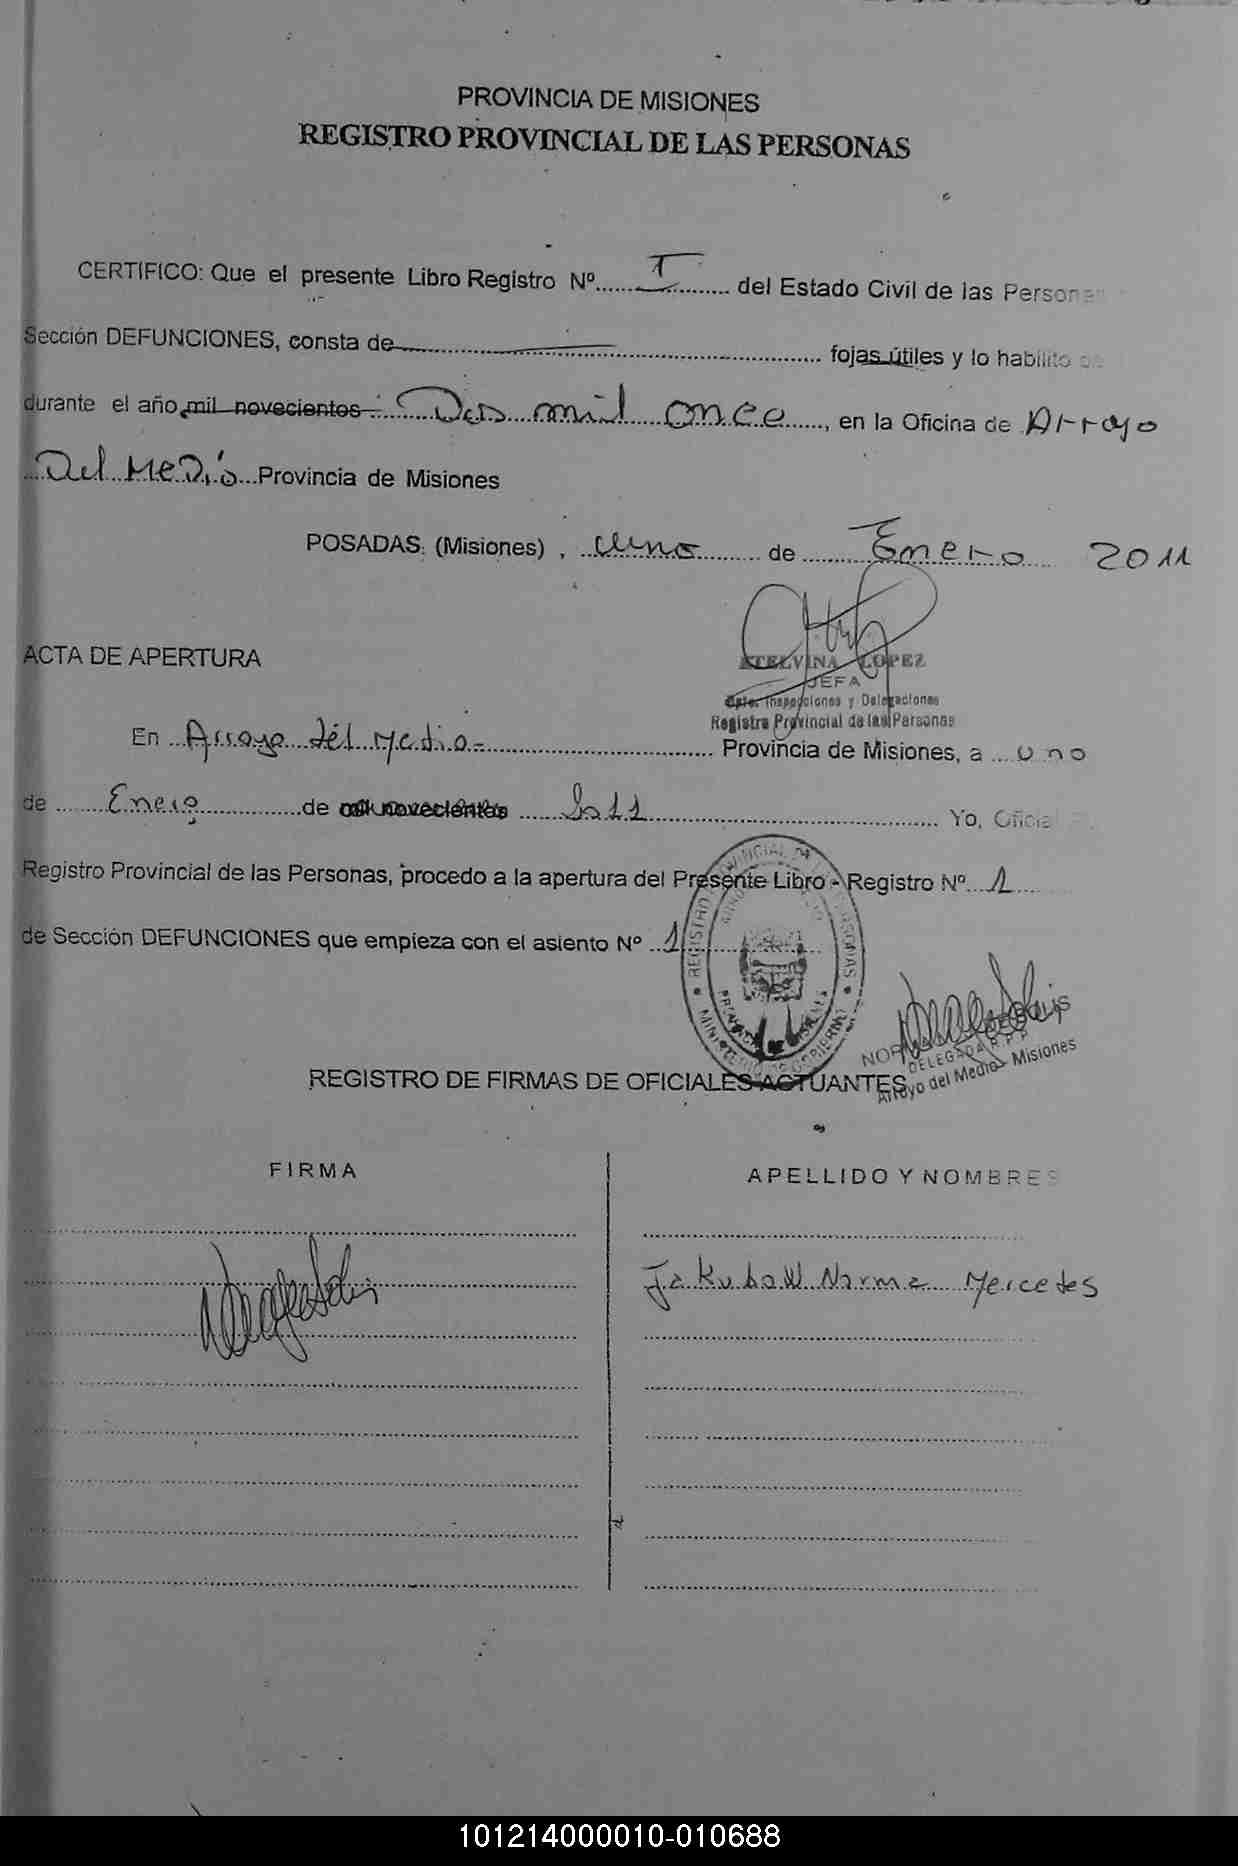 PROVINCIA DE MISIONES
REGISTRO PROVINCIAL DE LAS PERSONAS
CERTIFICO: Que el presente Libro Registro Nº I del Estado Civil de las Personas
Sección DEFUNCIONES, consta de fojas útiles y lo habilito
durante el año mil novecientos Dos mil once, en la Oficina de Arroyo
Del Medio Provincia de Misiones
POSADAS. (Misiones), uno de Enero 2011
ETELVINA LOPEZ
JEFA
Dpto. Inspecciones y Delegaciones
Registro Provincial de las Personas
ACTA DE APERTURA
En Arroyo del Medio- Provincia de Misiones, a uno
de Enero de mil novecientos 2011 Yo, Oficial
Registro Provincial de las Personas, procedo a la apertura del Presente Libro - Registro Nº 1
de Sección DEFUNCIONES que empieza con el asiento Nº 1
REGISTRO PROVINCIAL DE LAS PERSONAS
MINISTERIO DE GOBIERNO
PROVINCIA DE MISIONES
DELEGADA R.P.P.
Arroyo del Medio - Misiones
REGISTRO DE FIRMAS DE OFICIALES ACTUANTES
FIRMA APELLIDO Y NOMBRES
Norma Mercedes
101214000010-010688